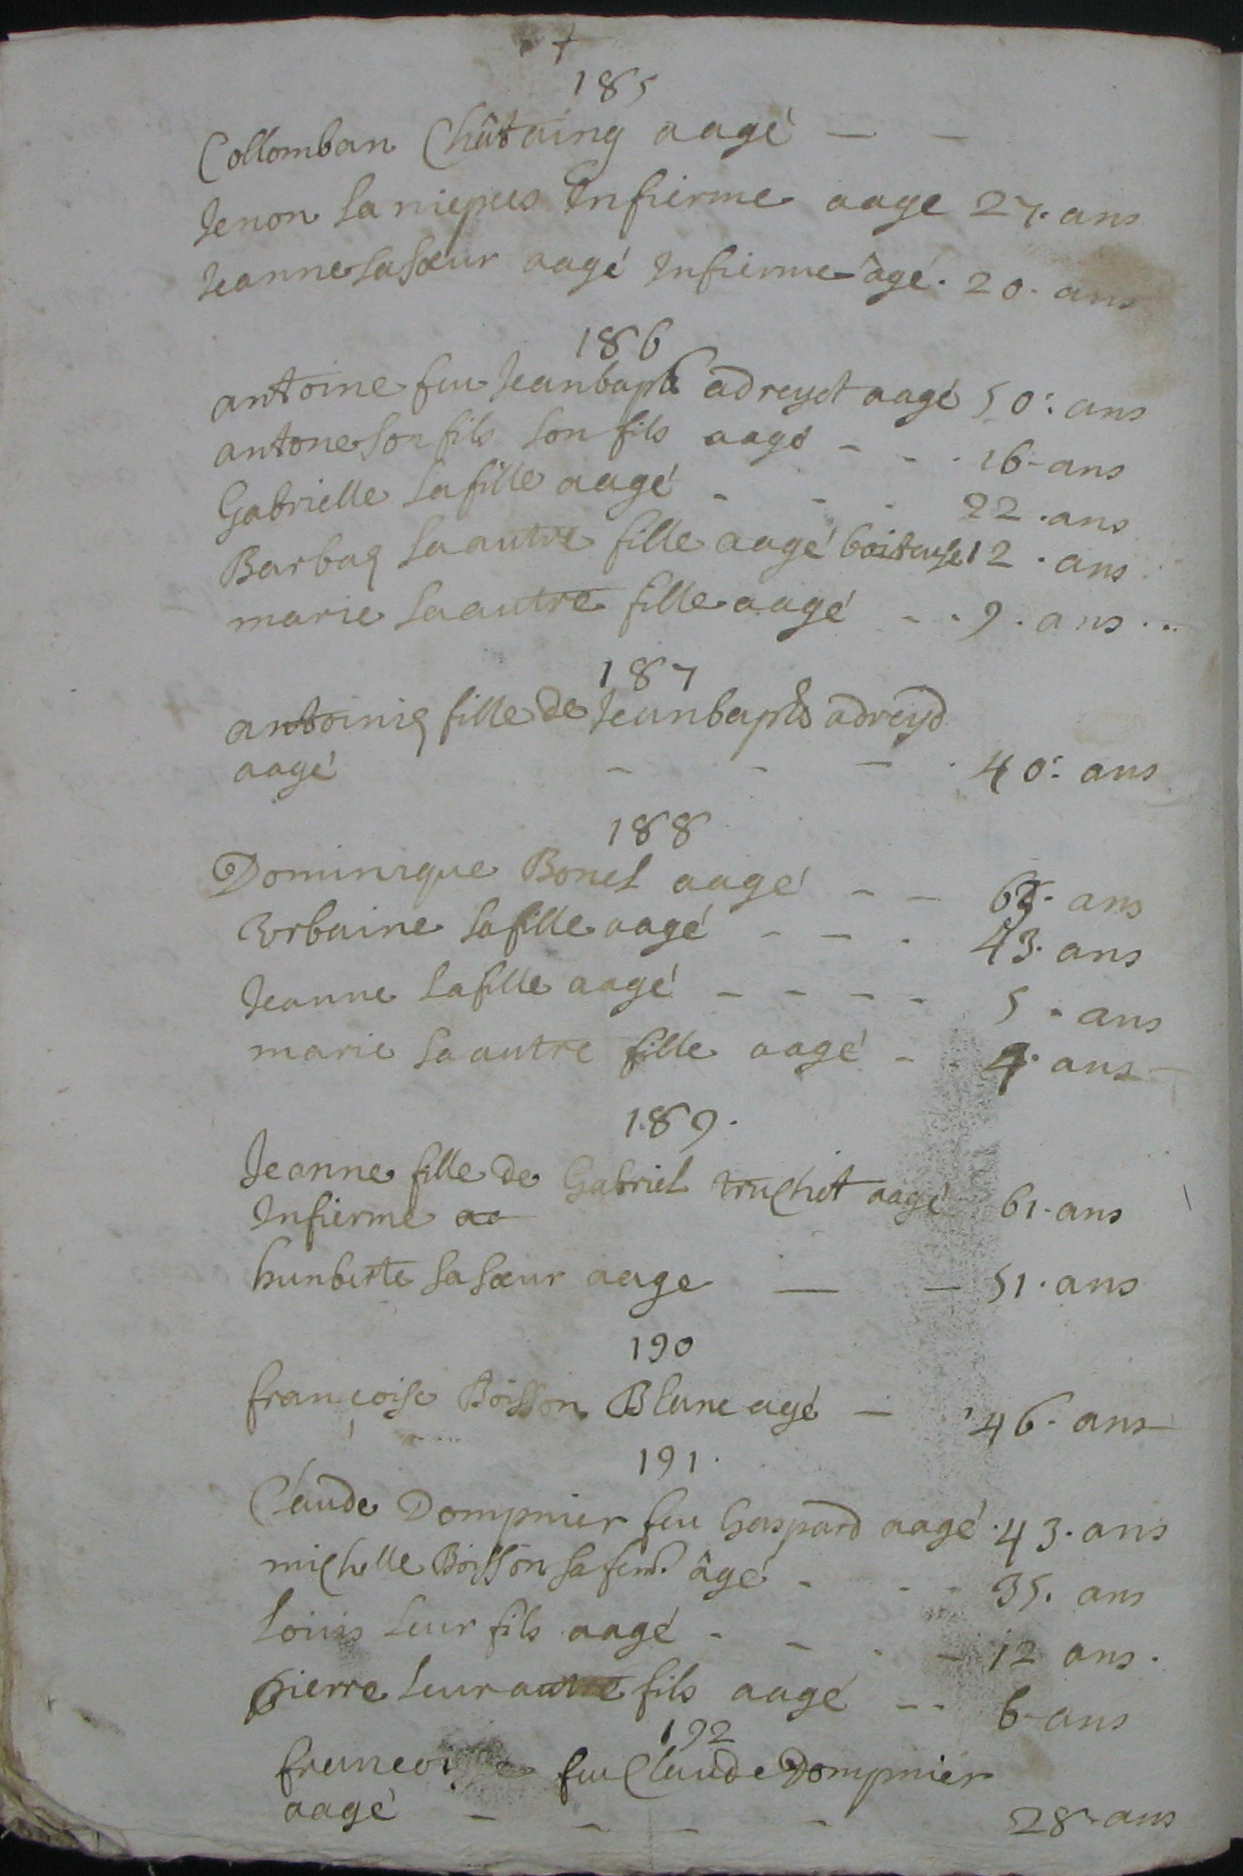 185
Collomban Châtaing aagé — —
Jenon sa niepces Infierme aage 27. ans
Jeanne sa sœur aagé Infierme âgé. 20. ans
186
antoine feu Jeanbapte adreyct aagé 50: ans
antone son fils son fils aagé - - . 16 ans
Gabrielle sa fille aagé - - . 22. ans
Barbaq sa autre fille aagé boiteuse 12. ans
marie sa autre fille aagé - - . 9. ans ..
187
antoiniq fille de Jeanbapte adreyd
aagé - - — . 40: ans
188
Dominique Bonel aagé - - ans
Urbaine sa fille aagé - - . 43. ans
Jeanne sa fille aagé - - - - 5. ans
marie sa autre fille aagé - 4. ans
189.
Jeanne fille de Gabriel truchet aagé 61. ans
Infierme aa
humberte sa sœur aage — — 51. ans
190
françoise Boisson Blanc agé — 46. ans
191.
Claude Dompnier feu Gaspard aagé. 43. ans
michelle Boisson sa fem. âgé - - - 35. ans
Louis leur fils aagé - - . - 12 ans.
pierre leur autre fils aagé - - 6 ans
192
francoise feu Claude Dompnier
aagé - - - - 28 ans